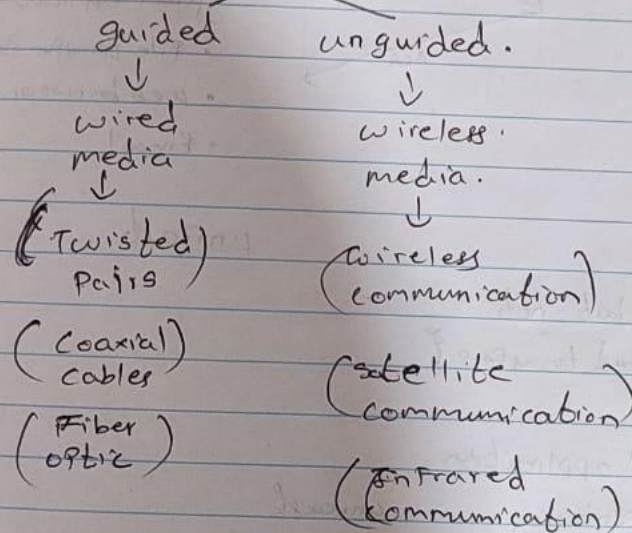 guided
↓
wired
media
↓
(Twisted)
pairs
(coaxial)
cables
(Fiber
optic)
unguided.
↓
wireless.
media.
↓
(wireless
communication)
(satellite
communication)
(Infrared
communication)